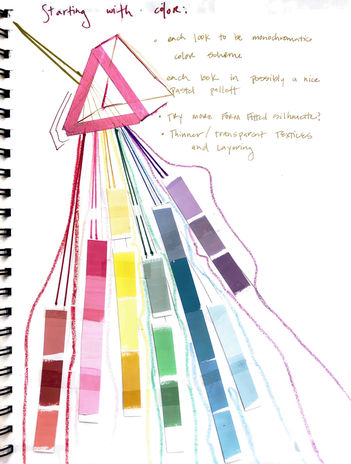 Starting with color:
• each look to be monochromatic
color scheme
• each look in possibly a nice
pastel pallett
• Try more form fitted silhouette?
• Thinner/transparent Textiles
and Layering